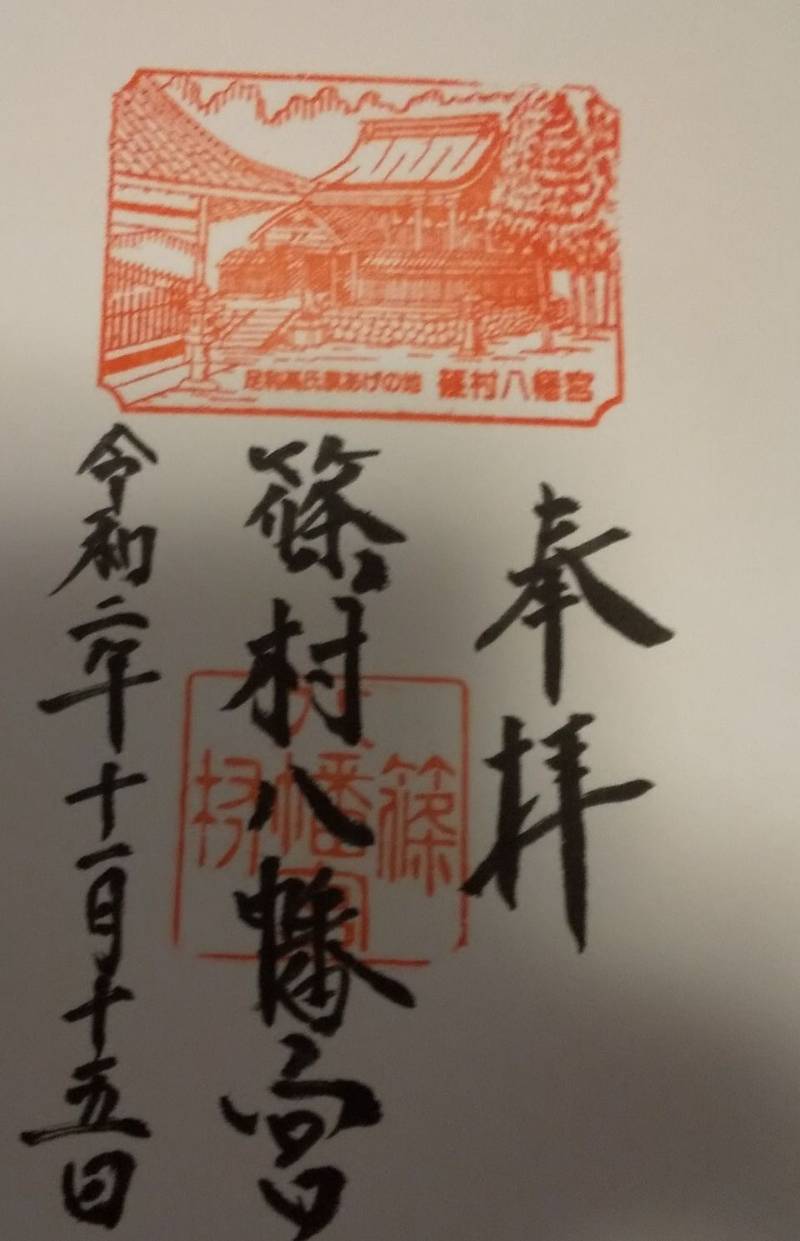 足利高氏旗あげの地 篠村八幡宮
奉拝
篠村八幡宮
篠村
八幡宮
令和二年十一月十五日